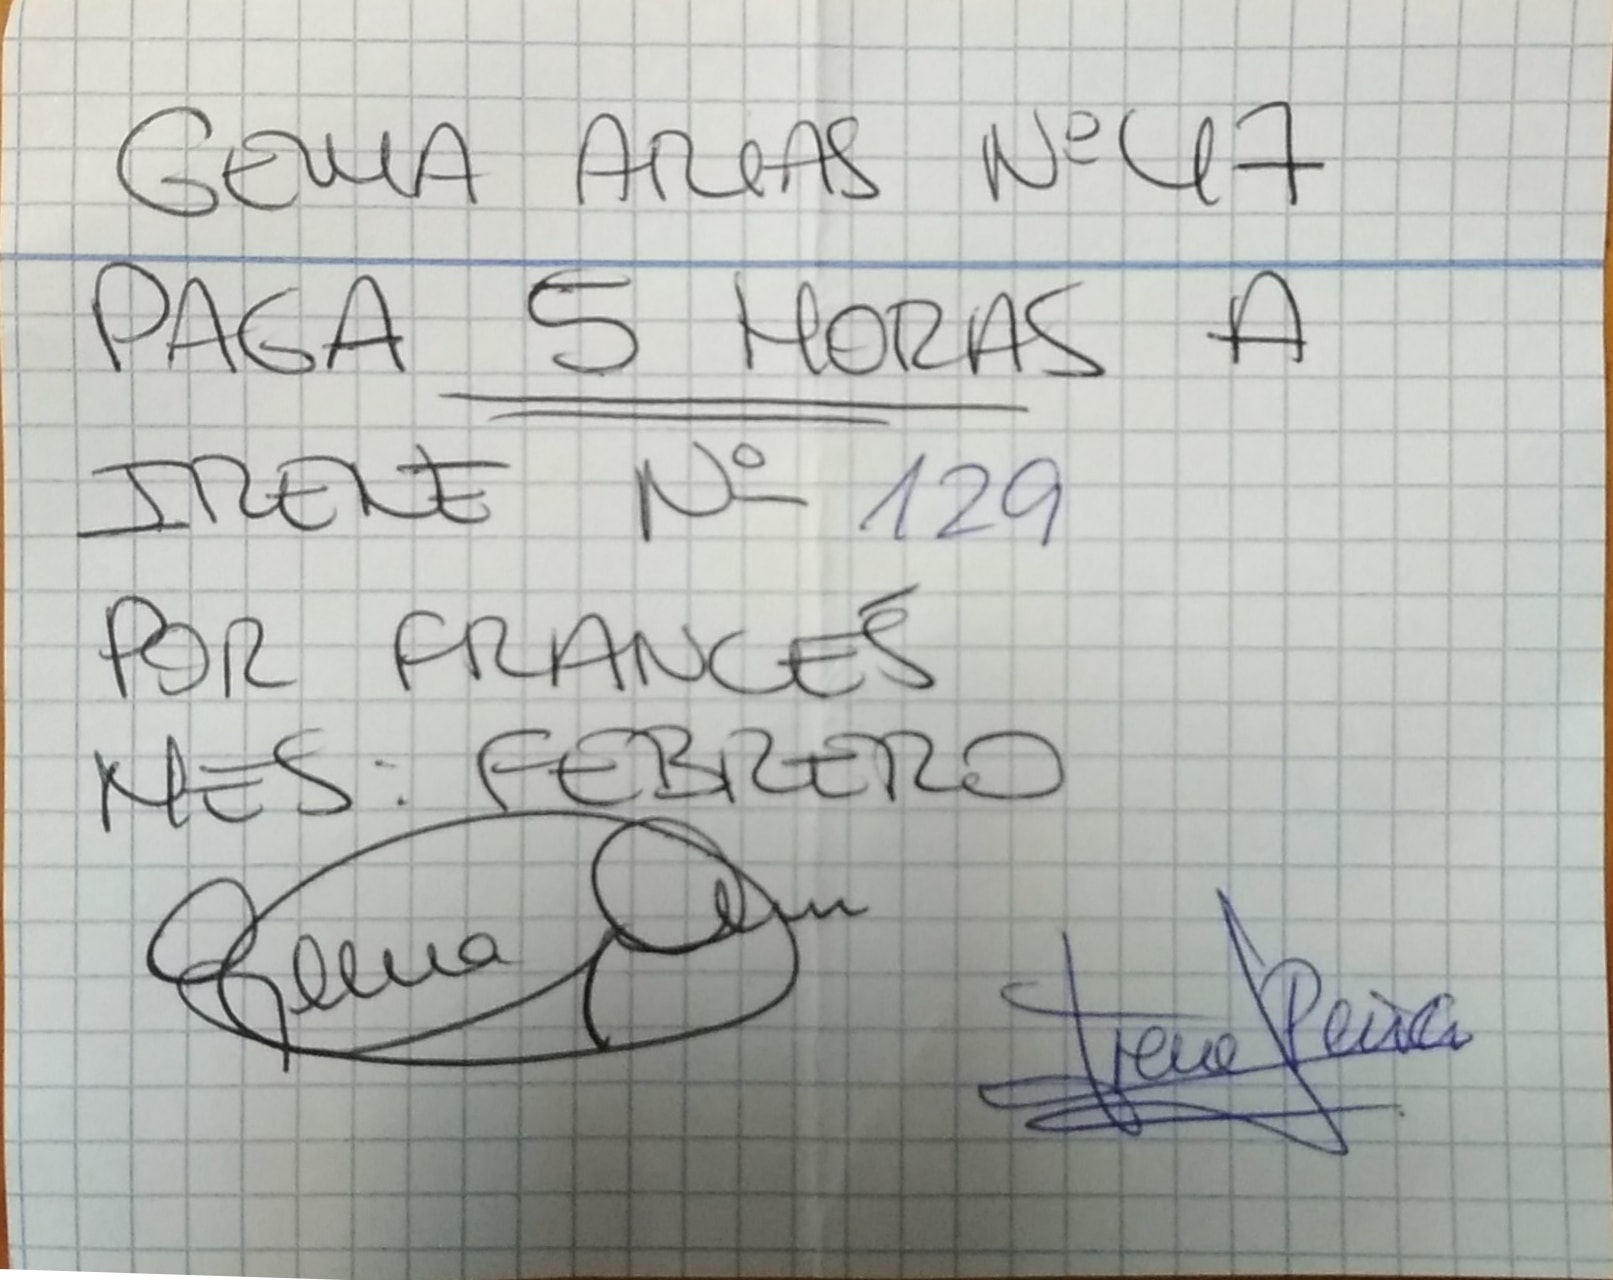 GEMA AREAS Nº 47
PAGA 5 HORAS A
IRENE Nº 129
POR FRANCÉS
MES: FEBRERO
Gema
Irene